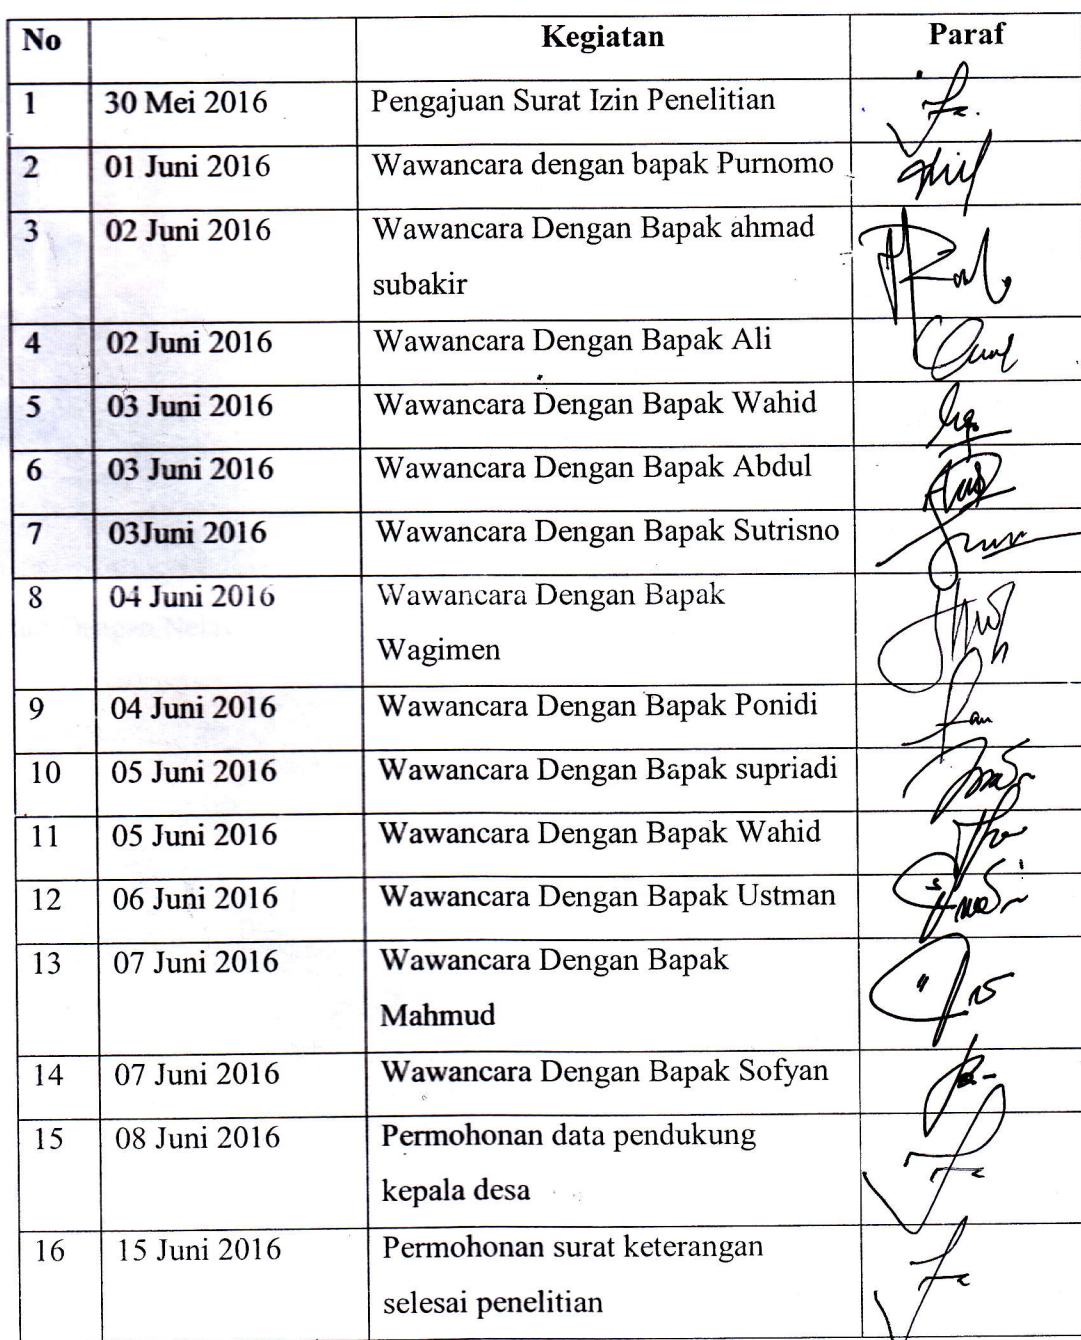 No Kegiatan Paraf
1 30 Mei 2016 Pengajuan Surat Izin Penelitian
2 01 Juni 2016 Wawancara dengan bapak Purnomo
3 02 Juni 2016 Wawancara Dengan Bapak ahmad
subakir
4 02 Juni 2016 Wawancara Dengan Bapak Ali
5 03 Juni 2016 Wawancara Dengan Bapak Wahid
6 03 Juni 2016 Wawancara Dengan Bapak Abdul
7 03Juni 2016 Wawancara Dengan Bapak Sutrisno
8 04 Juni 2016 Wawancara Dengan Bapak
Wagimen
9 04 Juni 2016 Wawancara Dengan Bapak Ponidi
10 05 Juni 2016 Wawancara Dengan Bapak supriadi
11 05 Juni 2016 Wawancara Dengan Bapak Wahid
12 06 Juni 2016 Wawancara Dengan Bapak Ustman
13 07 Juni 2016 Wawancara Dengan Bapak
Mahmud
14 07 Juni 2016 Wawancara Dengan Bapak Sofyan
15 08 Juni 2016 Permohonan data pendukung
kepala desa
16 15 Juni 2016 Permohonan surat keterangan
selesai penelitian